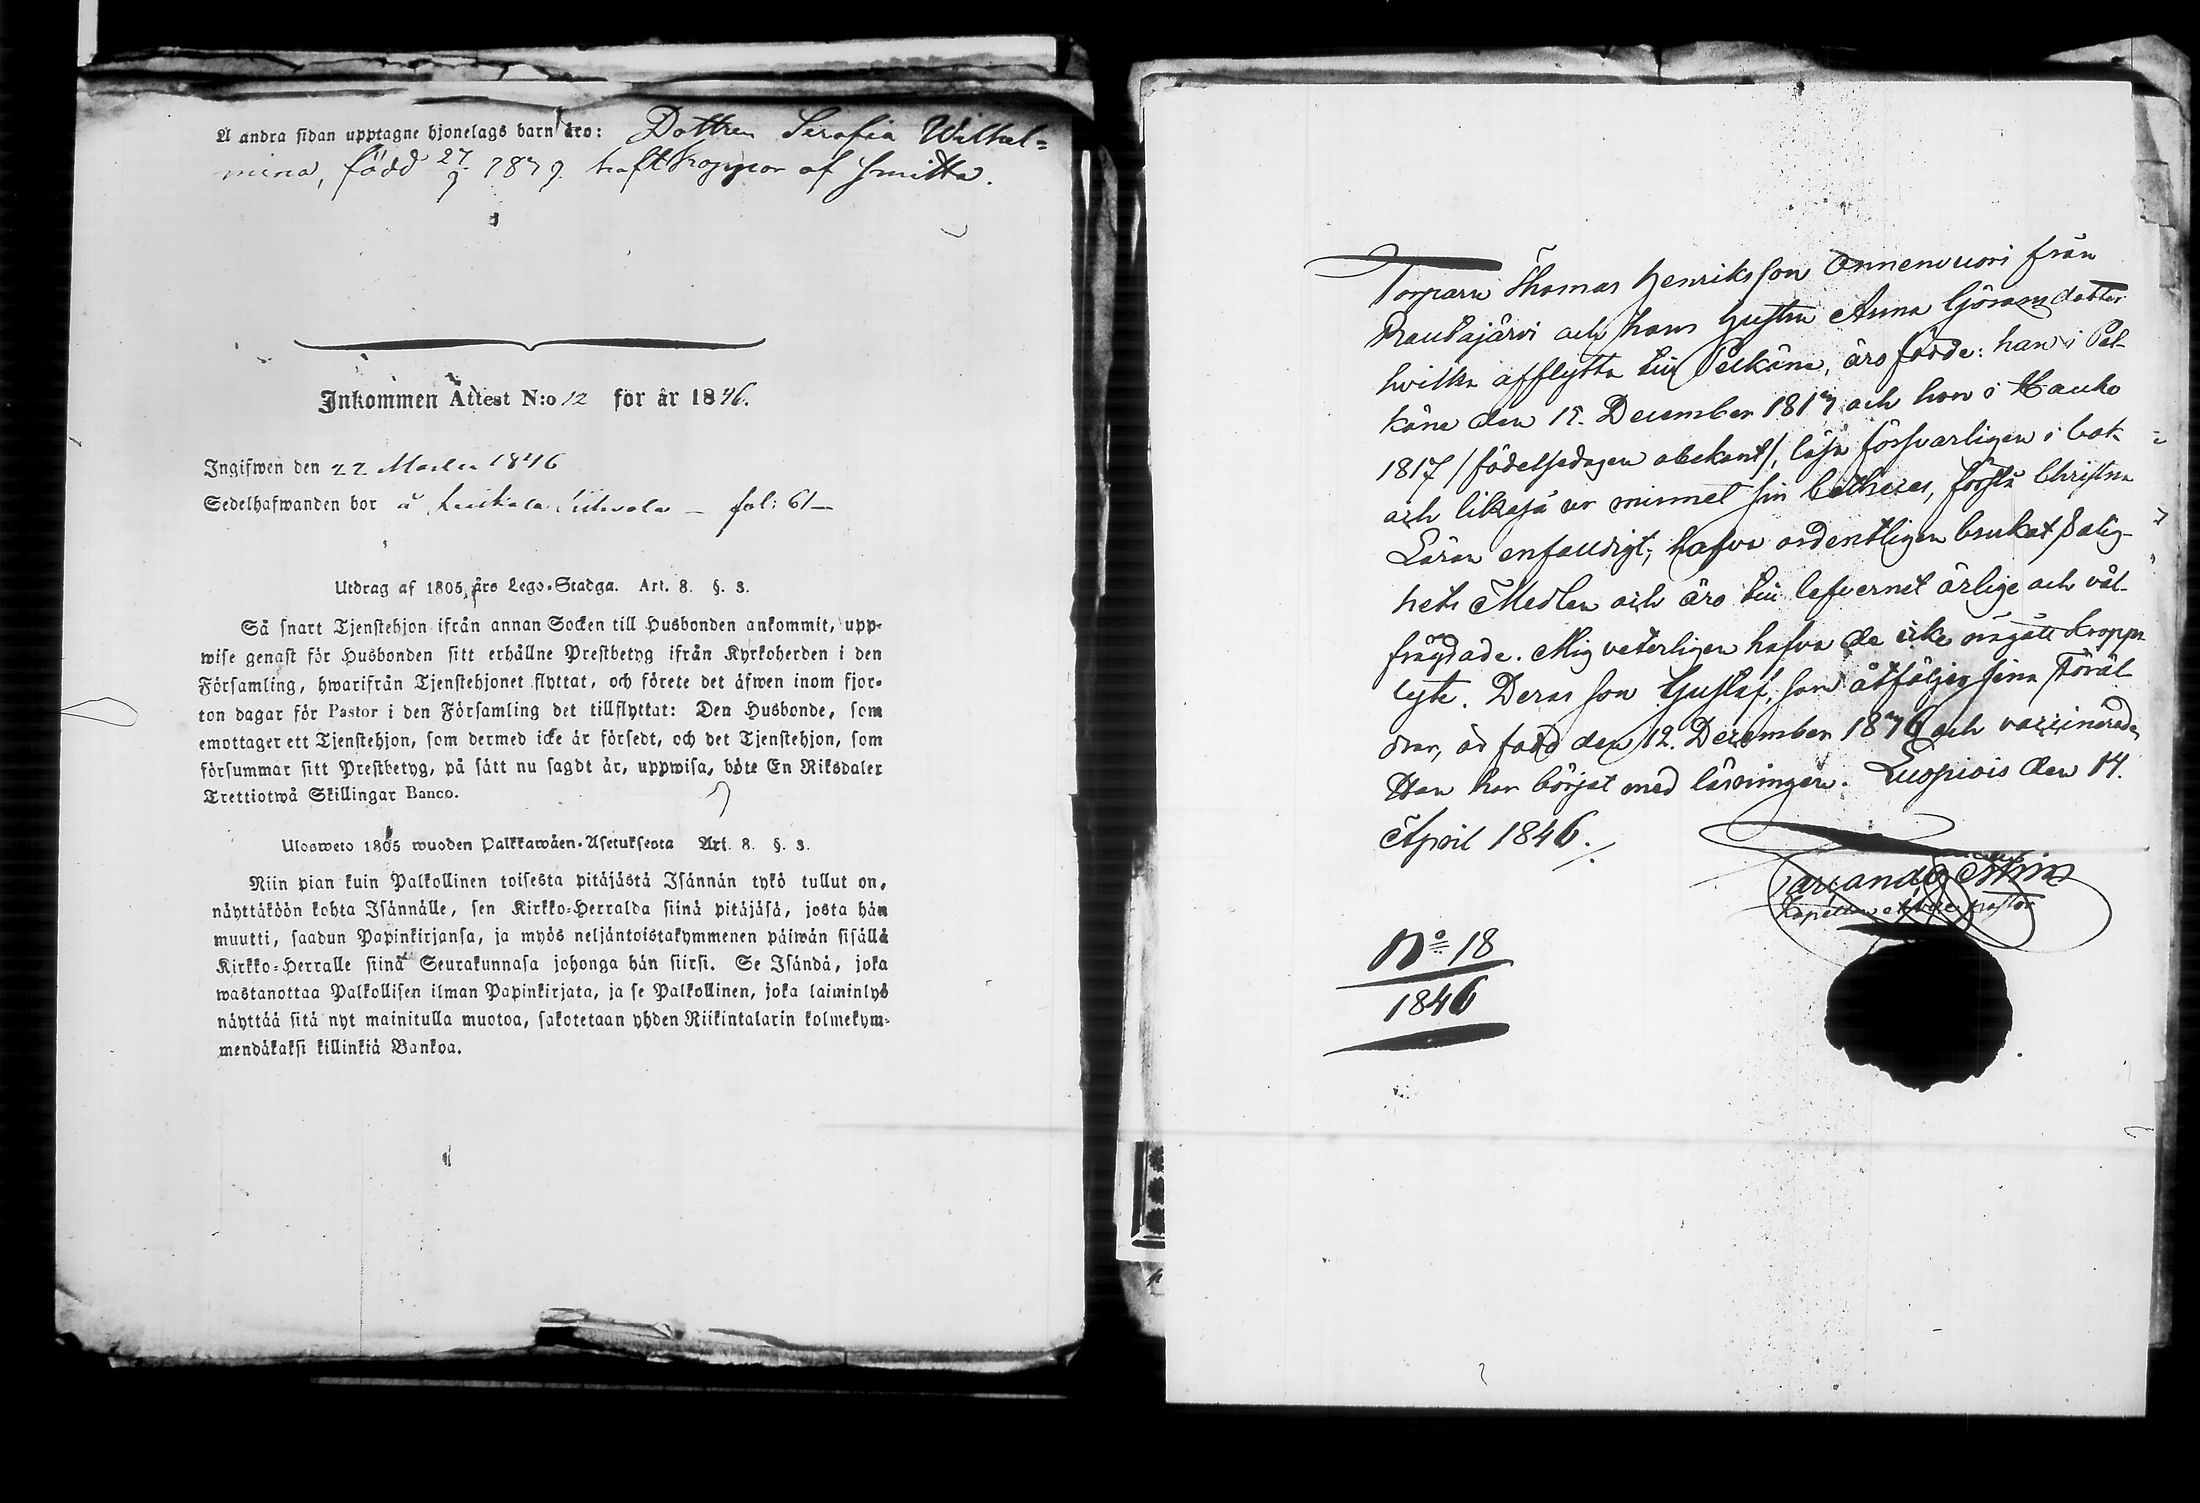 Å andra sidan upptagne hjonelags barn äro: Dottren Serafia Wilhel=
mina, född 27/9 1839. haft koppor af smitta.
Inkommen Attest N:o 12 för år 1846.
Ingifwen den 22 Martii 1846
Sedelhafwanden bor å fol: 61
Utdrag af 1805 års Lego-Stadga. Art. 8. §. 3.
Så snart Tjenstehjon ifrån annan Socken till Husbonden ankommit, upp-
wise genast för Husbonden sitt erhållne Prestbetyg ifrån Kyrkoherden i den
Församling, hwarifrån Tjenstehjonet flyttat, och förete det äfwen inom fjor-
ton dagar för Pastor i den Församling det tillflyttat: Den Husbonde, som
emottager ett Tjenstehjon, som dermed icke är försedt, och det Tjenstehjon, som
försummar sitt Prestbetyg, på sätt nu sagdt är, uppwisa, böte En Riksdaler
Trettiotwå Skillingar Banco.
Ulosweto 1805 wuoden Palkkawäen-Asetuksesta Art. 8. §. 3.
Niin pian kuin Palkollinen toisesta pitäjästä Isännän tykö tullut on,
näyttäköön kohta Isännälle, sen Kirkko-Herralda siinä pitäjäsä, josta hän
muutti, saadun Papinkirjansa, ja myös neljäntoistakymmenen päiwän sisällä
Kirkko-Herralle siinä Seurakunnasa johonga hän siirsi. Se Isändä, joka
wastanottaa Palkollisen ilman Papinkirjata, ja se Palkollinen, joka laiminlyö
näyttää sitä nyt mainitulla muotoa, sakotetaan yhden Riikintalarin kolmekym-
mendäkaksi killinkiä Bankoa.
Torparn Thomas Henriksson Onnenvuori från
Rautajärvi och hans hustru Anna Göransdotter
hvilka afflytta till Pelkäne, äro födde: han i Pel-
käne den 15. December 1817 och hon i Hauho
1817 /födelsedagen obekant/, läsa försvarligen i bok
och likaså ur minnet sin Catheces, förstå Christna
Läran enfaldigt; hafva ordentligen brukat Salig-
hets Medlen och äro till lefvernet ärlige och väl
frägdade. Mig veterligen hafva de icke något kropps
lyte. Deras son Gustaf, som åtföljer sina Föräl
drar, är född den 12. December 1836 och vaccinerad.
Han har börjat med läsningen. Luopiois den 14.
April 1846.
Kapellan
N:o 18
1846